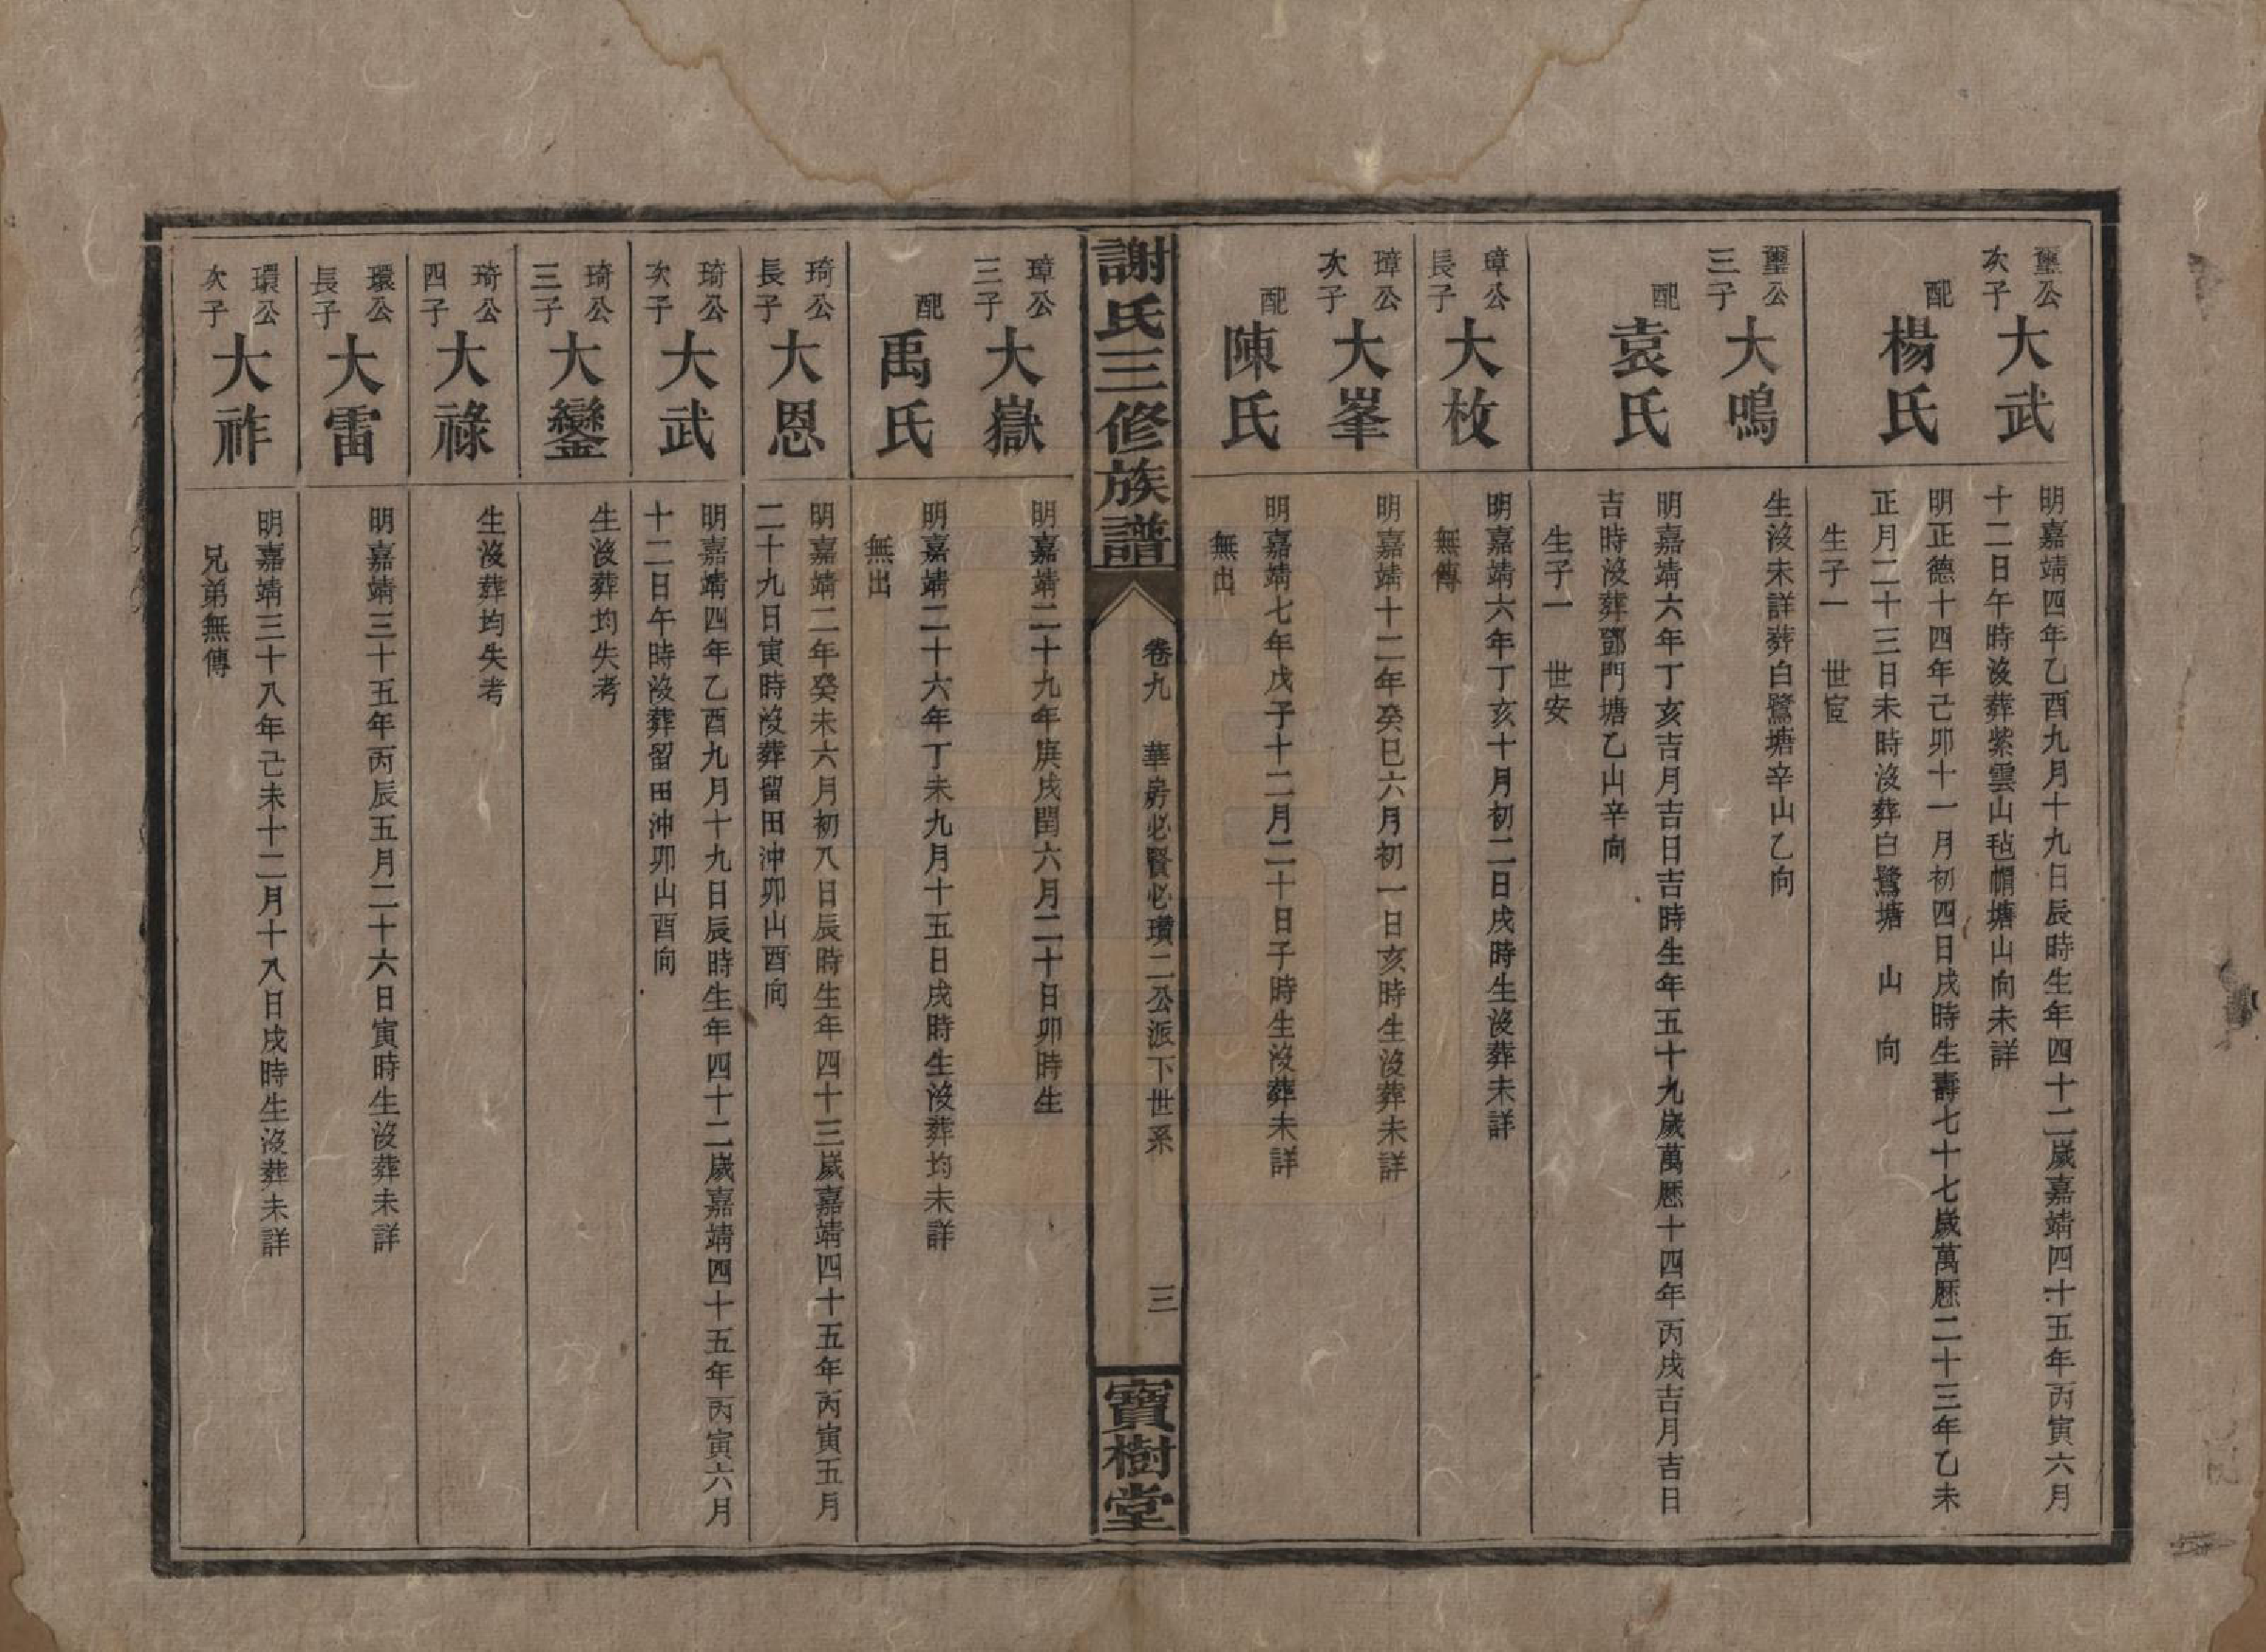 璽公
次子
大武
明嘉靖四年乙酉九月十九日辰時生年四十二歲嘉靖四十五年丙寅六月
十二日午時沒葬紫雲山毡帽塘山向未詳
配
楊氏
明正德十四年己卯十一月初四日戌時生壽七十七歲萬厯二十三年乙未
正月二十三日未時沒葬白鷺塘 山 向
生子一 世宦
璽公
三子
大鳴
生沒未詳葬白鷺塘辛山乙向
配
袁氏
明嘉靖六年丁亥吉月吉日吉時生年五十九歲萬厯十四年丙戌吉月吉日
吉時沒葬鄧門塘乙山辛向
生子一 世安
璋公
長子
大枚
明嘉靖六年丁亥十月初二日戌時生沒葬未詳
無傳
璋公
次子
大峯
明嘉靖十二年癸巳六月初一日亥時生沒葬未詳
配
陳氏
明嘉靖七年戊子十二月二十日子時生沒葬未詳
無出
謝氏三修族譜
卷九 華房必賢必瓚二公派下世系
三
寶樹堂
璋公
三子
大嶽
明嘉靖二十九年庚戌閏六月二十日卯時生
配
禹氏
明嘉靖二十六年丁未九月十五日戌時生沒葬均未詳
無出
琦公
長子
大恩
明嘉靖二年癸未六月初八日辰時生年四十三歲嘉靖四十五年丙寅五月
二十九日寅時沒葬留田沖卯山酉向
琦公
次子
大武
明嘉靖四年乙酉九月十九日辰時生年四十二歲嘉靖四十五年丙寅六月
十二日午時沒葬留田沖卯山酉向
琦公
三子
大鑾
生沒葬均失考
琦公
四子
大祿
生沒葬均失考
環公
長子
大雷
明嘉靖三十五年丙辰五月二十六日寅時生沒葬未詳
環公
次子
大祚
明嘉靖三十八年己未十二月十八日戌時生沒葬未詳
兄弟無傳